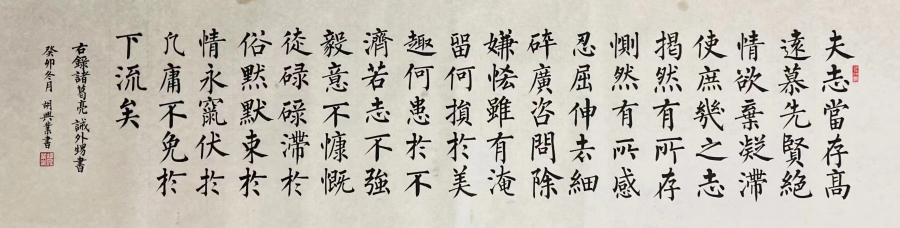 夫志當存高
遠慕先賢絕
情欲棄凝滯
使庶幾之志
揭然有所存
惻然有所感
忍屈伸去細
碎廣咨問除
嫌恡雖有淹
留何損於美
趣何患於不
濟若志不強
毅意不慷慨
徒碌碌滯於
俗默默束於
情永竄伏於
凡庸不免於
下流矣
右錄諸葛亮誡外甥書
癸卯冬月胡興業書